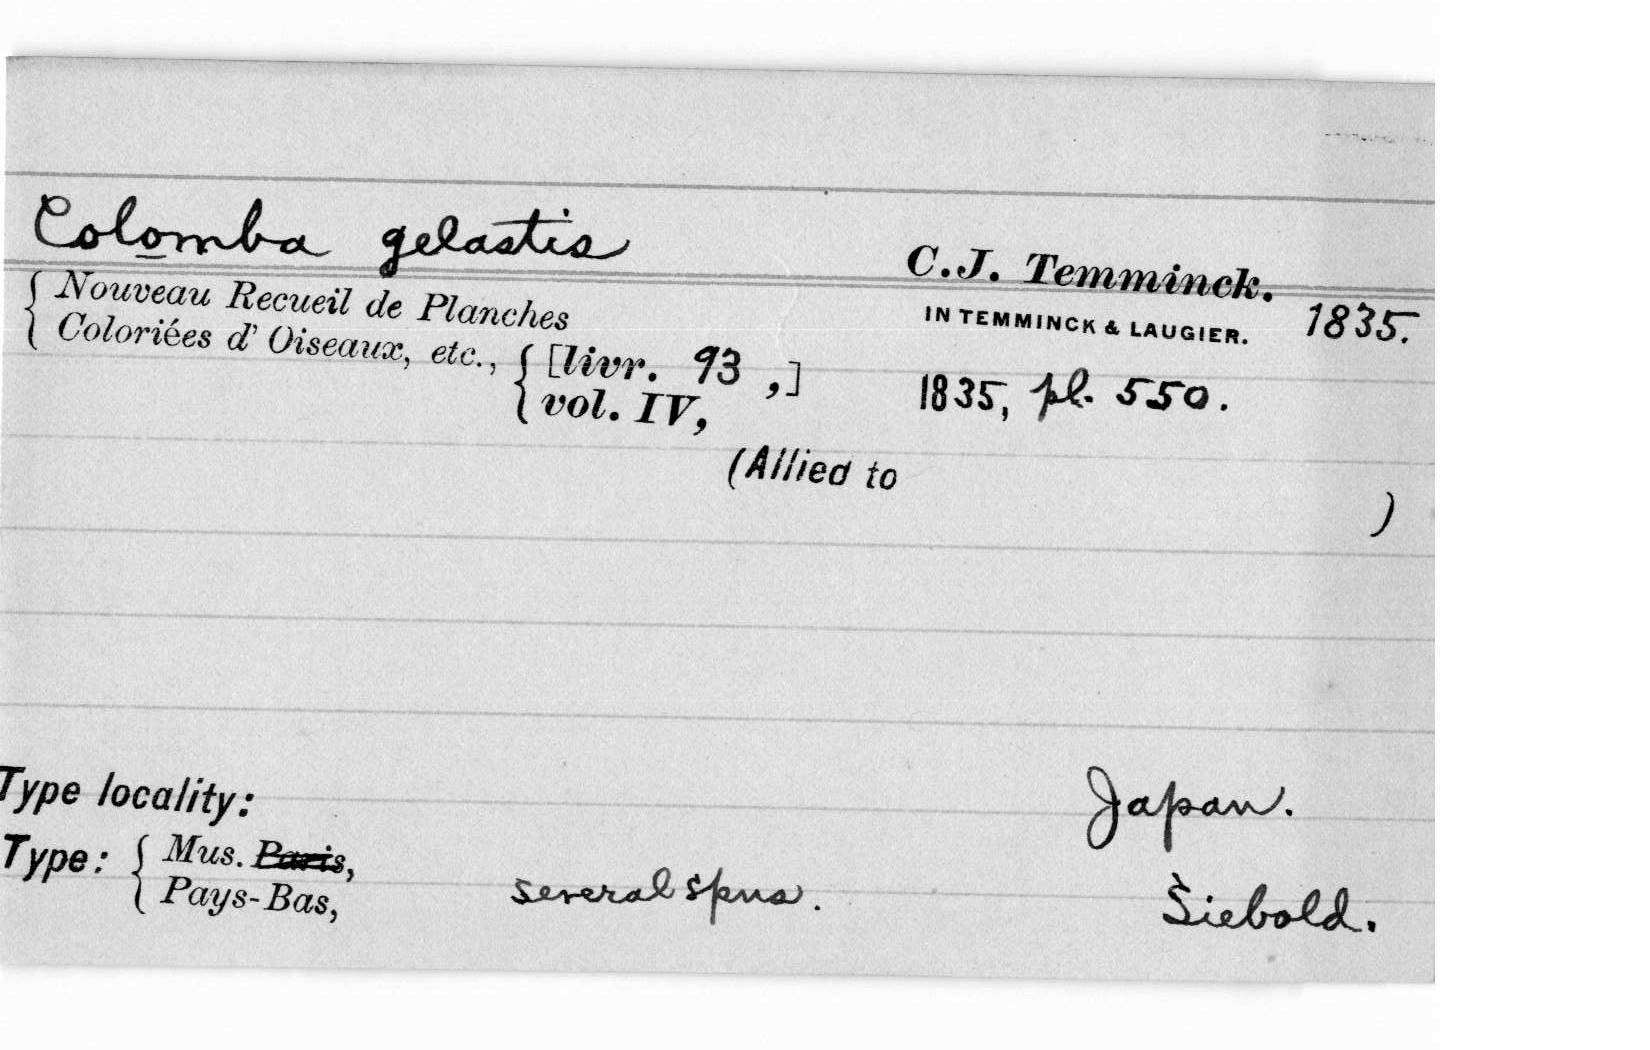 Colomba gelastis
C.J. Temminck.
{ Nouveau Recueil de Planches
IN TEMMINCK & LAUGIER. 1835.
Coloriées d' Oiseaux, etc., { [livr. 93 ,]
vol. IV, 1835, pl. 550.
(Allied to )
Type locality: Japan.
Type: { Mus. Paris,
Pays-Bas, several spns. Siebold.